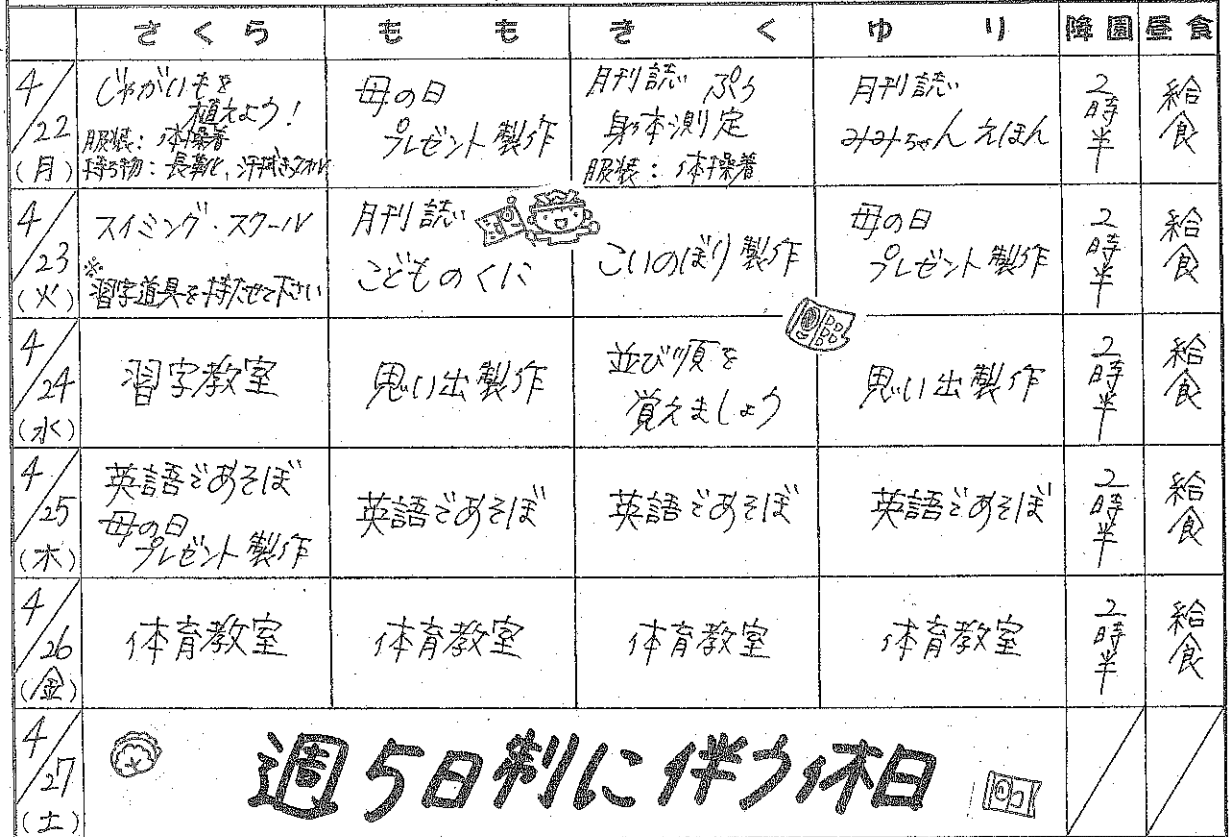 さくら もも きく ゆり 降園 昼食
4/22(月)
じゃがいもを
植えよう!
服装：体操着
持ち物：長靴、汗拭きタオル
母の日
プレゼント製作
月刊誌 ぷう
身体測定
服装：体操着
月刊誌
みみちゃんえほん
2時半
給食
4/23(火)
スイミング・スクール
※
習字道具を持たせて下さい
月刊誌
こどものくに
こいのぼり製作
母の日
プレゼント製作
2時半
給食
4/24(水)
習字教室
思い出製作
並び順を
覚えましょう
思い出製作
2時半
給食
4/25(木)
英語であそぼ
母の日
プレゼント製作
英語であそぼ
英語であそぼ
英語であそぼ
2時半
給食
4/26(金)
体育教室
体育教室
体育教室
体育教室
2時半
給食
4/27(土)
週5日制に伴う休日